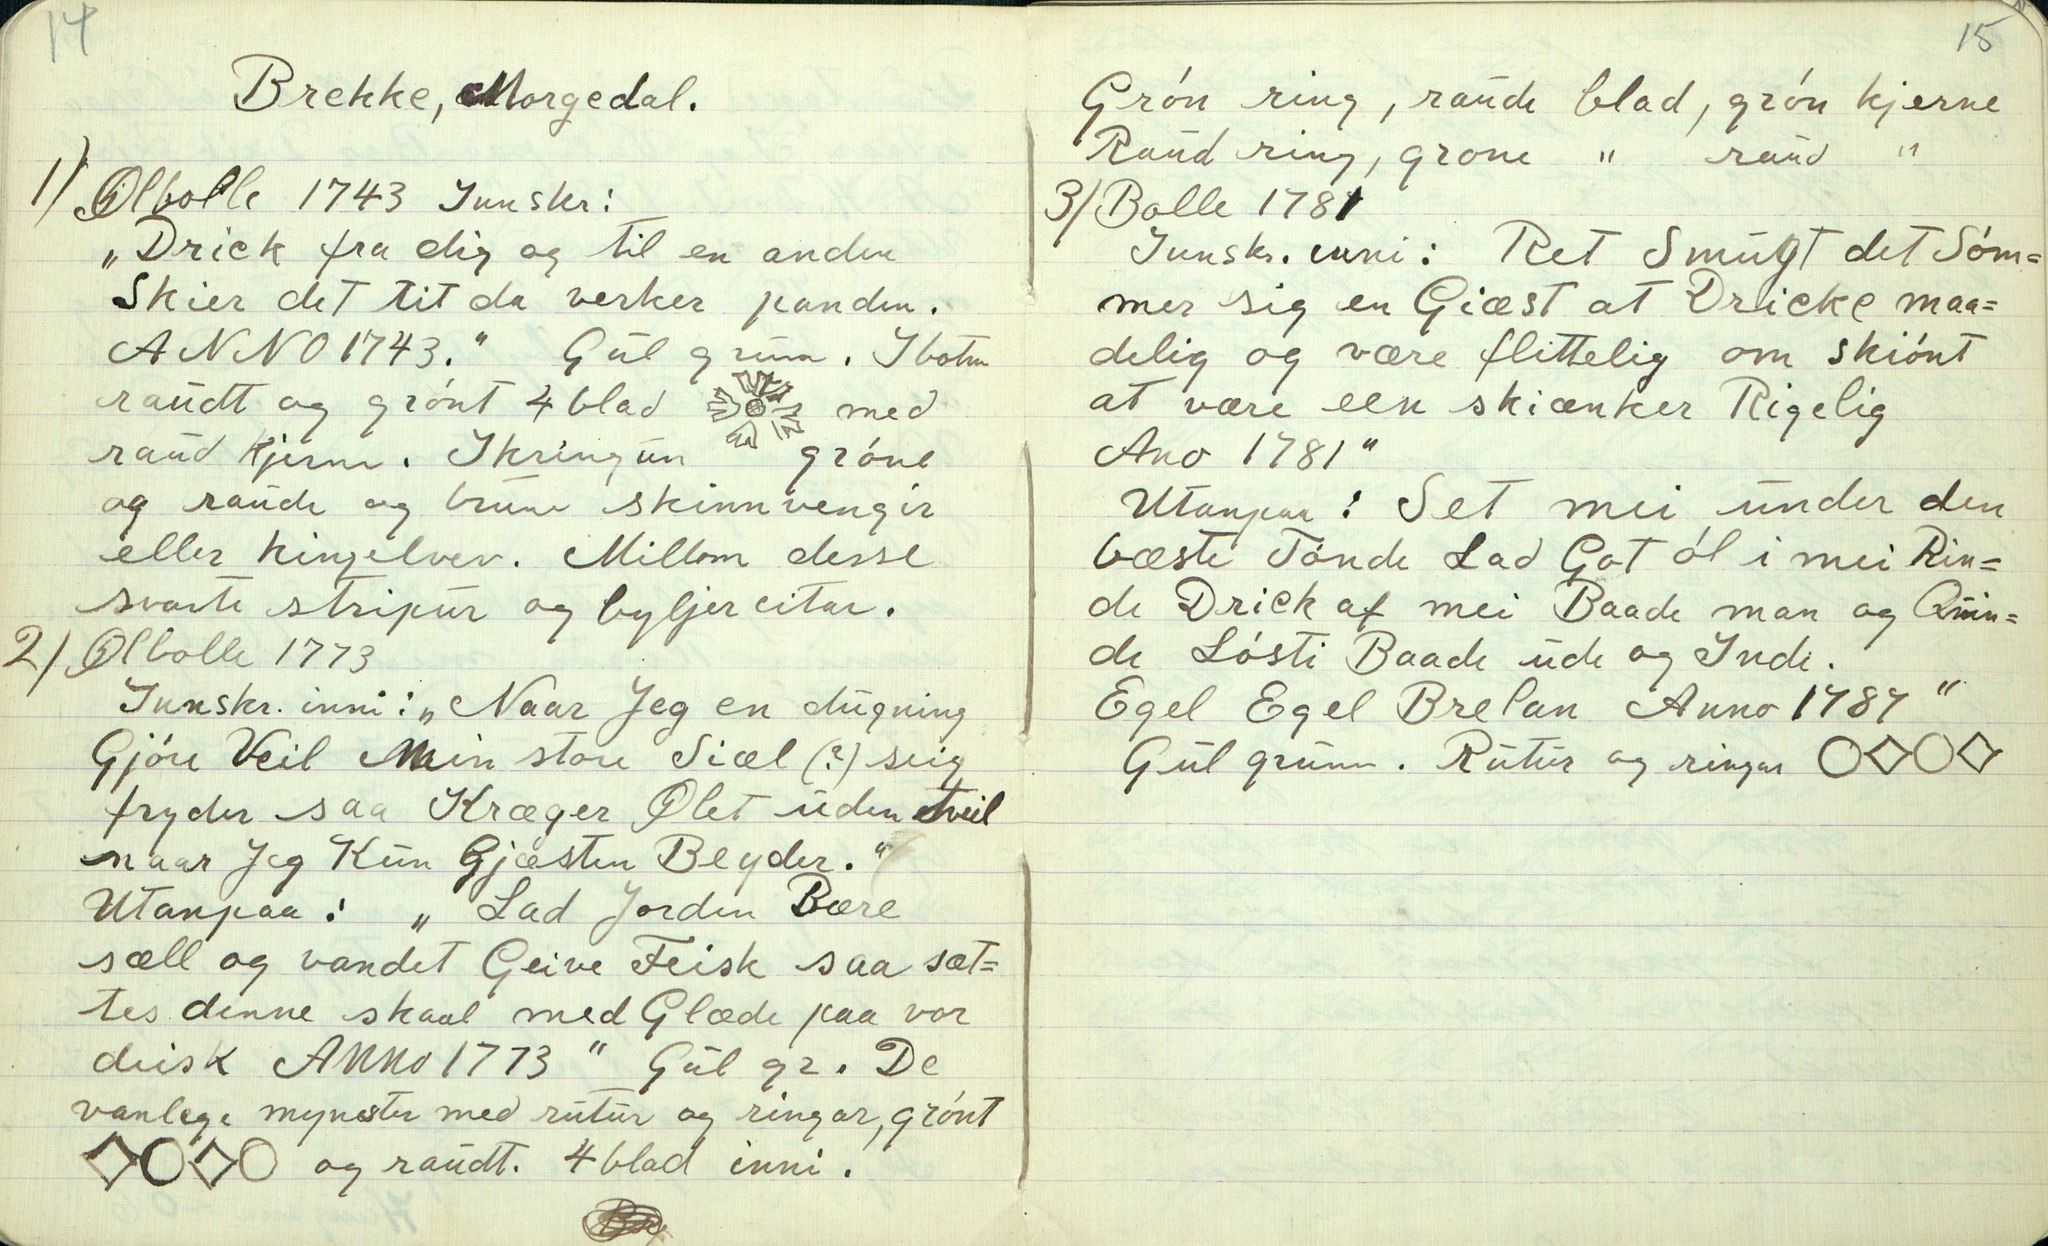 14
Brekke, Morgedal.
1) Ølbolle 1743 Innskr:
„Drick fra dig og til en anden
Skier det tit da verker panden.
ANNO 1743." Gul grunn. I botn
raudt og grónt 4 blad med
raud kjerne. Ikringun gróne
og raude og brune skinnvengir
eller kingelvev. Millom desse
svarte stripur og bylgjer eitar.
2) Ølbolle 1773
Innskr. inni: „Naar Jeg en dugning
Gjóre Veil Min store Siæl (?) seig
fryder saa Kræger Ølet uden tveil
naar Jeg Kun Gjæsten Beyder."
Utanpaa: „Lad Jorden Bære
sæll og vandet Geive Feisk saa sæt=
tes denne skaal med Glæde paa vor
deisk ANNO 1773" Gul gr. De
vanlege mynster med rutur og ringar, grónt
og raudt. 4 blad inni.
15
Grón ring, raude blad, grón kjerne
Raud ring, grone " raud "
3) Bolle 1781
Innskr. inni: Ret Smugt det Sóm=
mer sig en Giæst at Dricke maa=
delig og være flittelig om skiónt
at være een skiænker Rigelig
Ano 1781"
Utanpaa: Set mei under den
bæste Tónde Lad Got ól i mei Rin=
de Drick af mei Baade man og Quin=
de Lósti Baade ude og Inde.
Egel Egel Brelan Anno 1787"
Gul grunn. Rutur og ringar